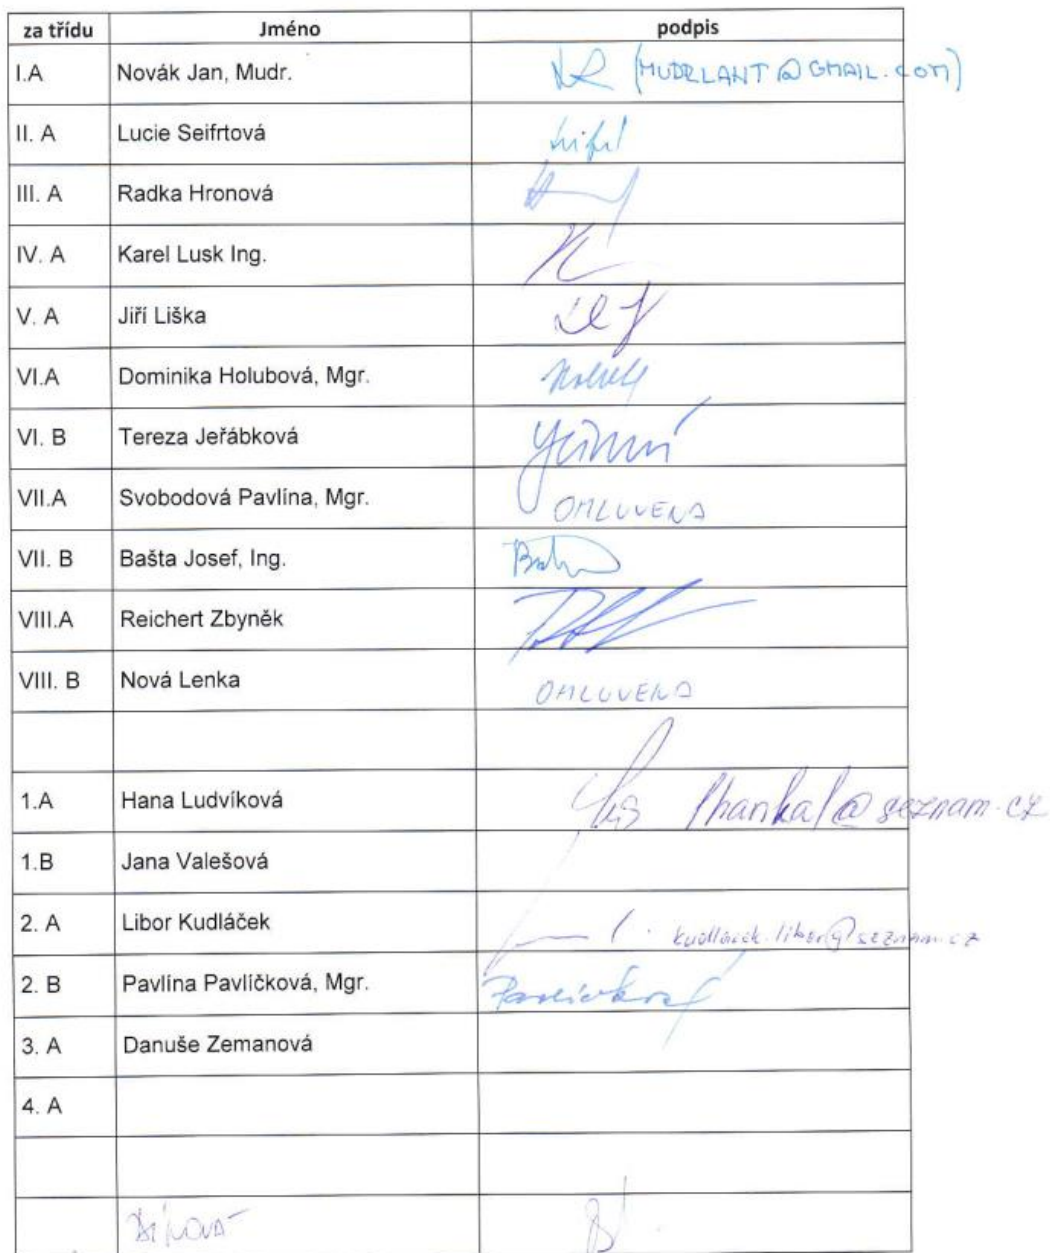 za třídu Jméno podpis
I.A Novák Jan, Mudr. (MUDRLANT@GMAIL.COM)
II. A Lucie Seifrtová
III. A Radka Hronová
IV. A Karel Lusk Ing.
V. A Jiří Liška
VI.A Dominika Holubová, Mgr.
VI. B Tereza Jeřábková
VII.A Svobodová Pavlína, Mgr. OMLUVENA
VII. B Bašta Josef, Ing.
VIII.A Reichert Zbyněk
VIII. B Nová Lenka OMLUVENA
1.A Hana Ludvíková lhankal@seznam.cz
1.B Jana Valešová
2. A Libor Kudláček kudlacek.libor@seznam.cz
2. B Pavlína Pavlíčková, Mgr.
3. A Danuše Zemanová
4. A